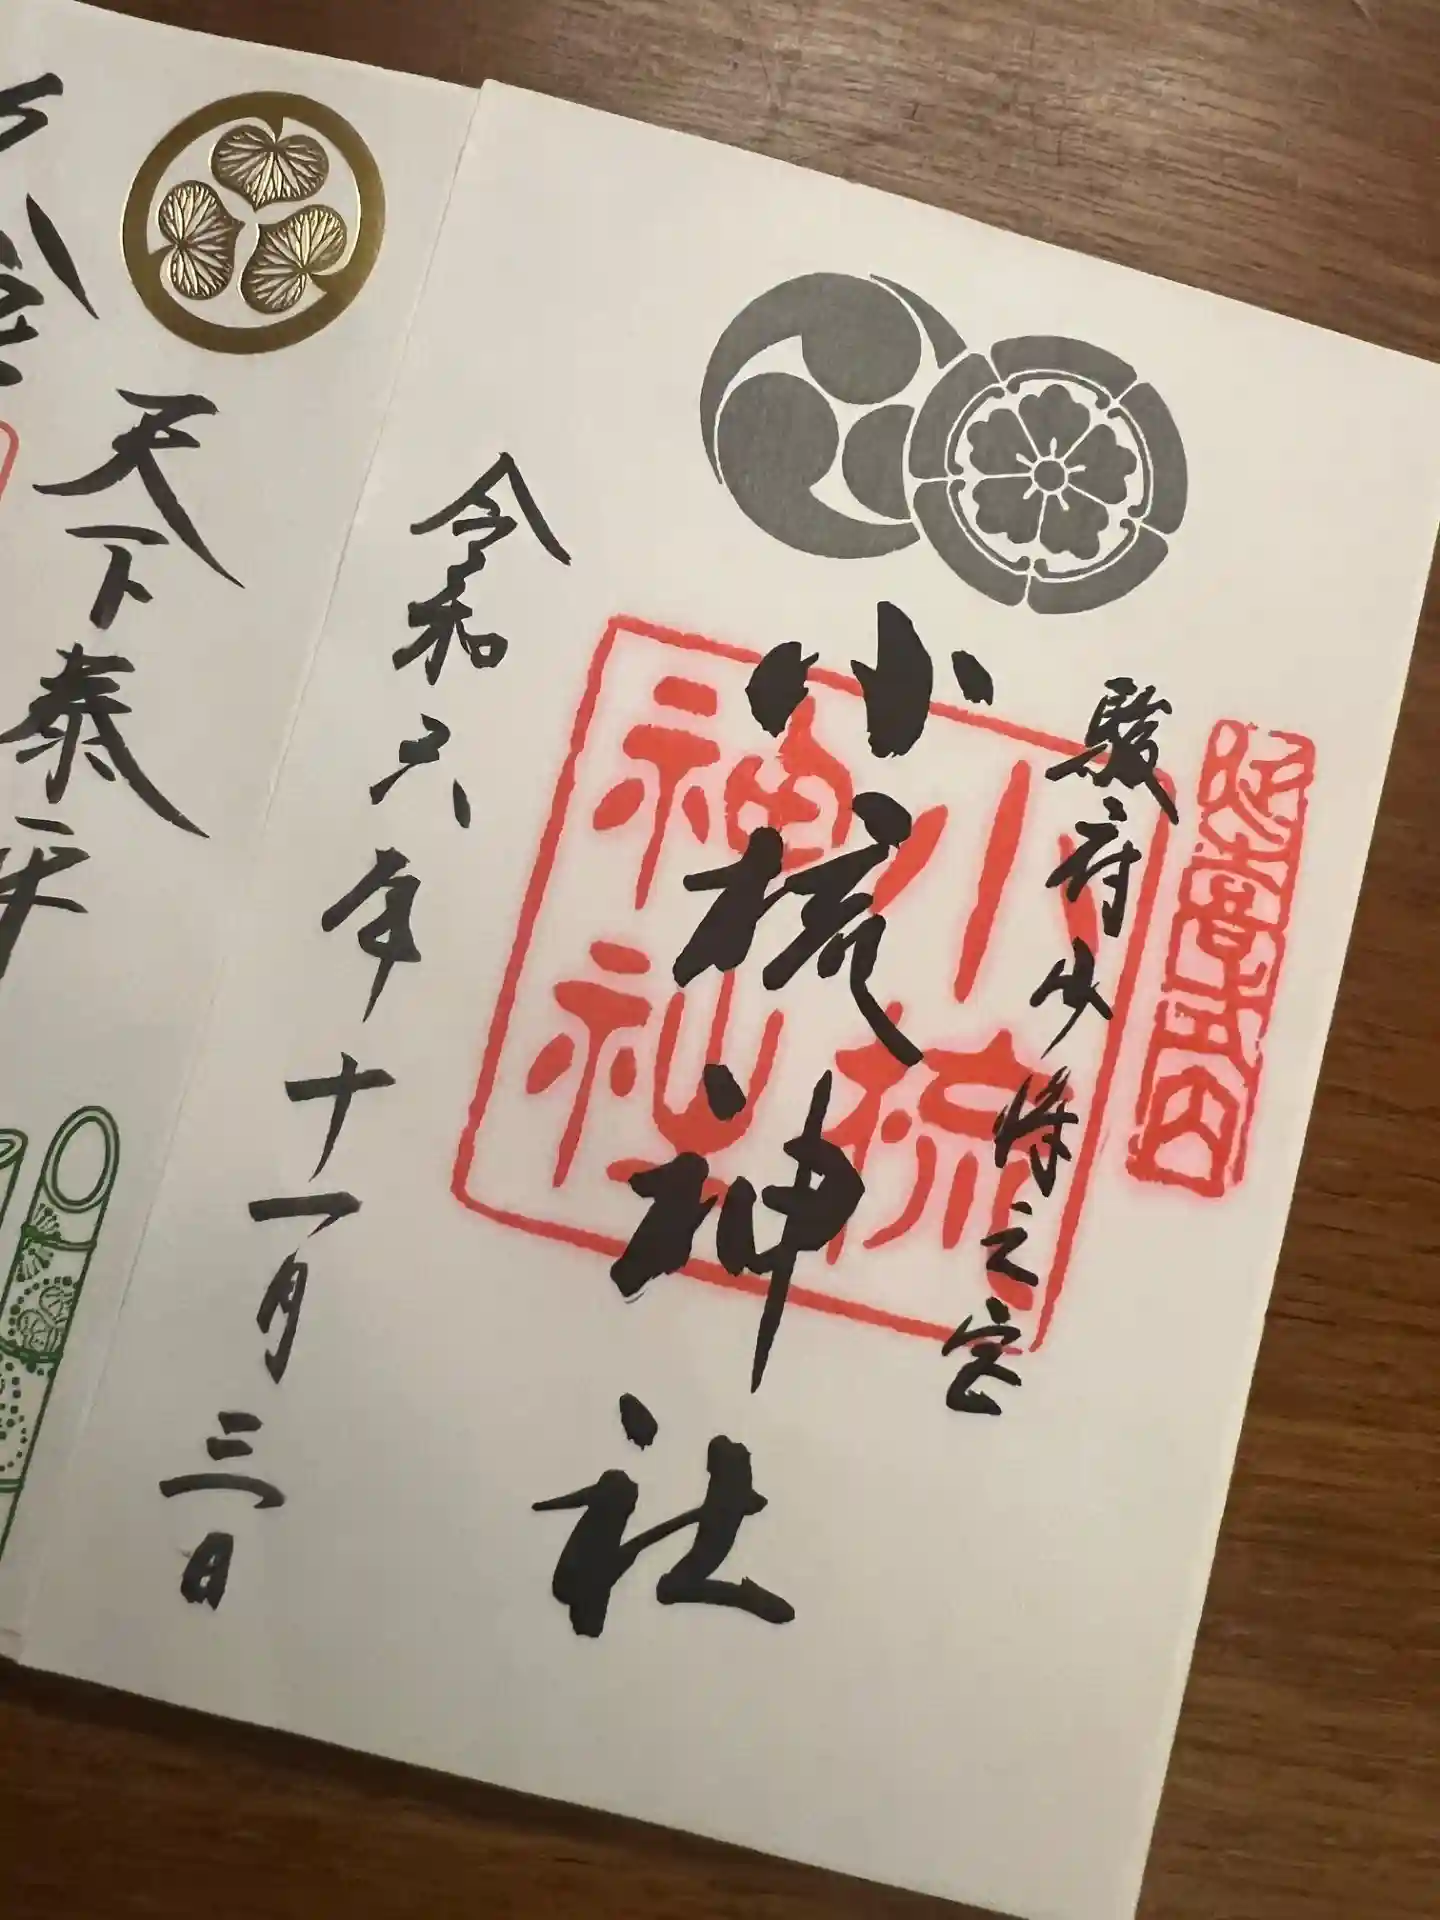 延喜式内
駿府少将之宮
小梳神社
小梳
神社
令和六年十一月三日
天下泰平